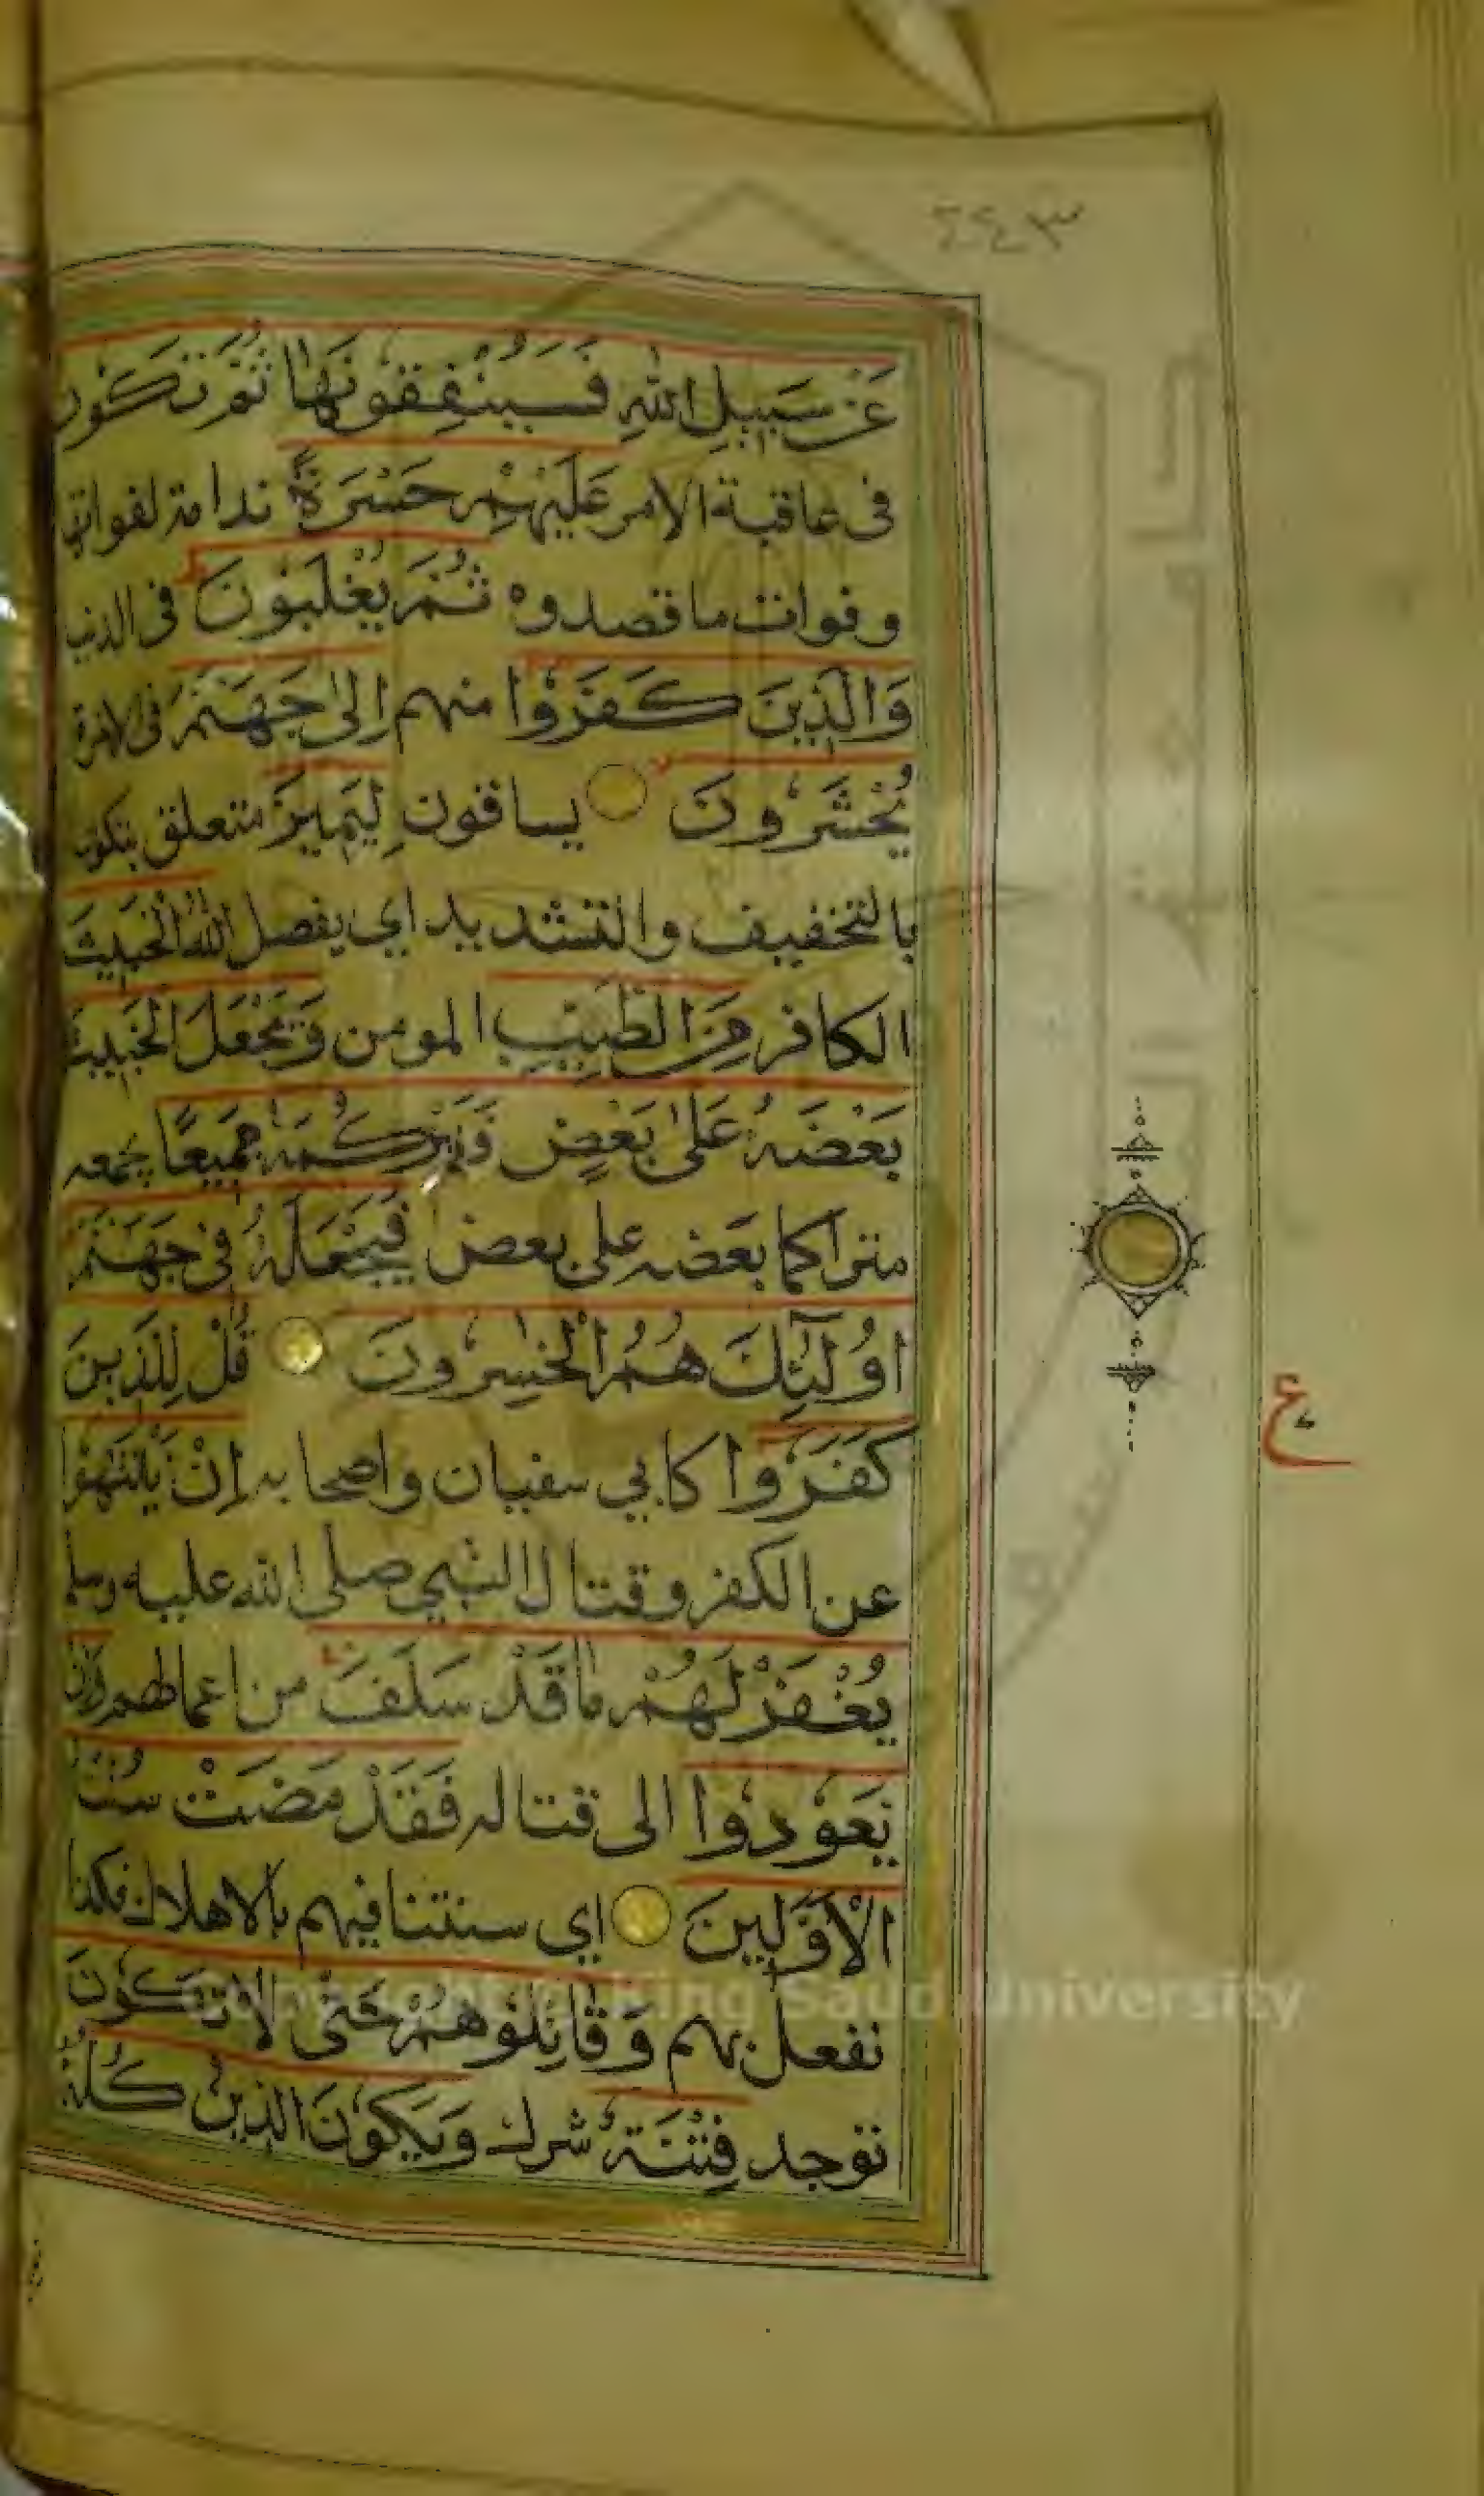 ٢٤٣
عَنْ سَبِيلِ اللّٰهِ فَسَيُنْفِقُونَهَا ثُمَّ تَكُونُ
فى عاقبة الامر عَلَيْهِمْ حَسْرَةً ندامة لفواتها
وفوات ما قصدوه ثُمَّ يُغْلَبُونَ فى الدنيا
وَالَّذِينَ كَفَرُوا منهم اِلٰى جَهَنَّمَ فى الاخرة
يُحْشَرُونَ يساقون لِيَمِيزَ متعلق بتكون
بالتخفيف والتشديد اي يفصل اللّٰهُ الْخَبِيثَ
الكافر مِنَ الطَّيِّبِ المومن وَيَجْعَلَ الْخَبِيثَ
بَعْضَهُ عَلٰى بَعْضٍ فَيَرْكُمَهُ جَمِيعًا يجمعه
متراكما بعضه على بعض فَيَجْعَلَهُ فِى جَهَنَّمَ
اُولٰٓئِكَ هُمُ الْخٰسِرُونَ قُلْ لِلَّذِينَ
كَفَرُوا كابي سفيان واصحابه اِنْ يَنْتَهُوا
عن الكفر وقتال النبي صلى الله عليه وسلم
يُغْفَرْ لَهُمْ مَا قَدْ سَلَفَ من اعمالهم وَاِنْ
يَعُودُوا الى قتاله فَقَدْ مَضَتْ سُنَّتُ
الْاَوَّلِينَ اي سنتنا فيهم بالاهلاك فكذا
نفعل بهم وَقَاتِلُوهُمْ حَتّٰى لَا تَكُونَ
توجد فِتْنَةٌ شرك وَيَكُونَ الدِّينُ كُلُّهُ
ع
King Saud University